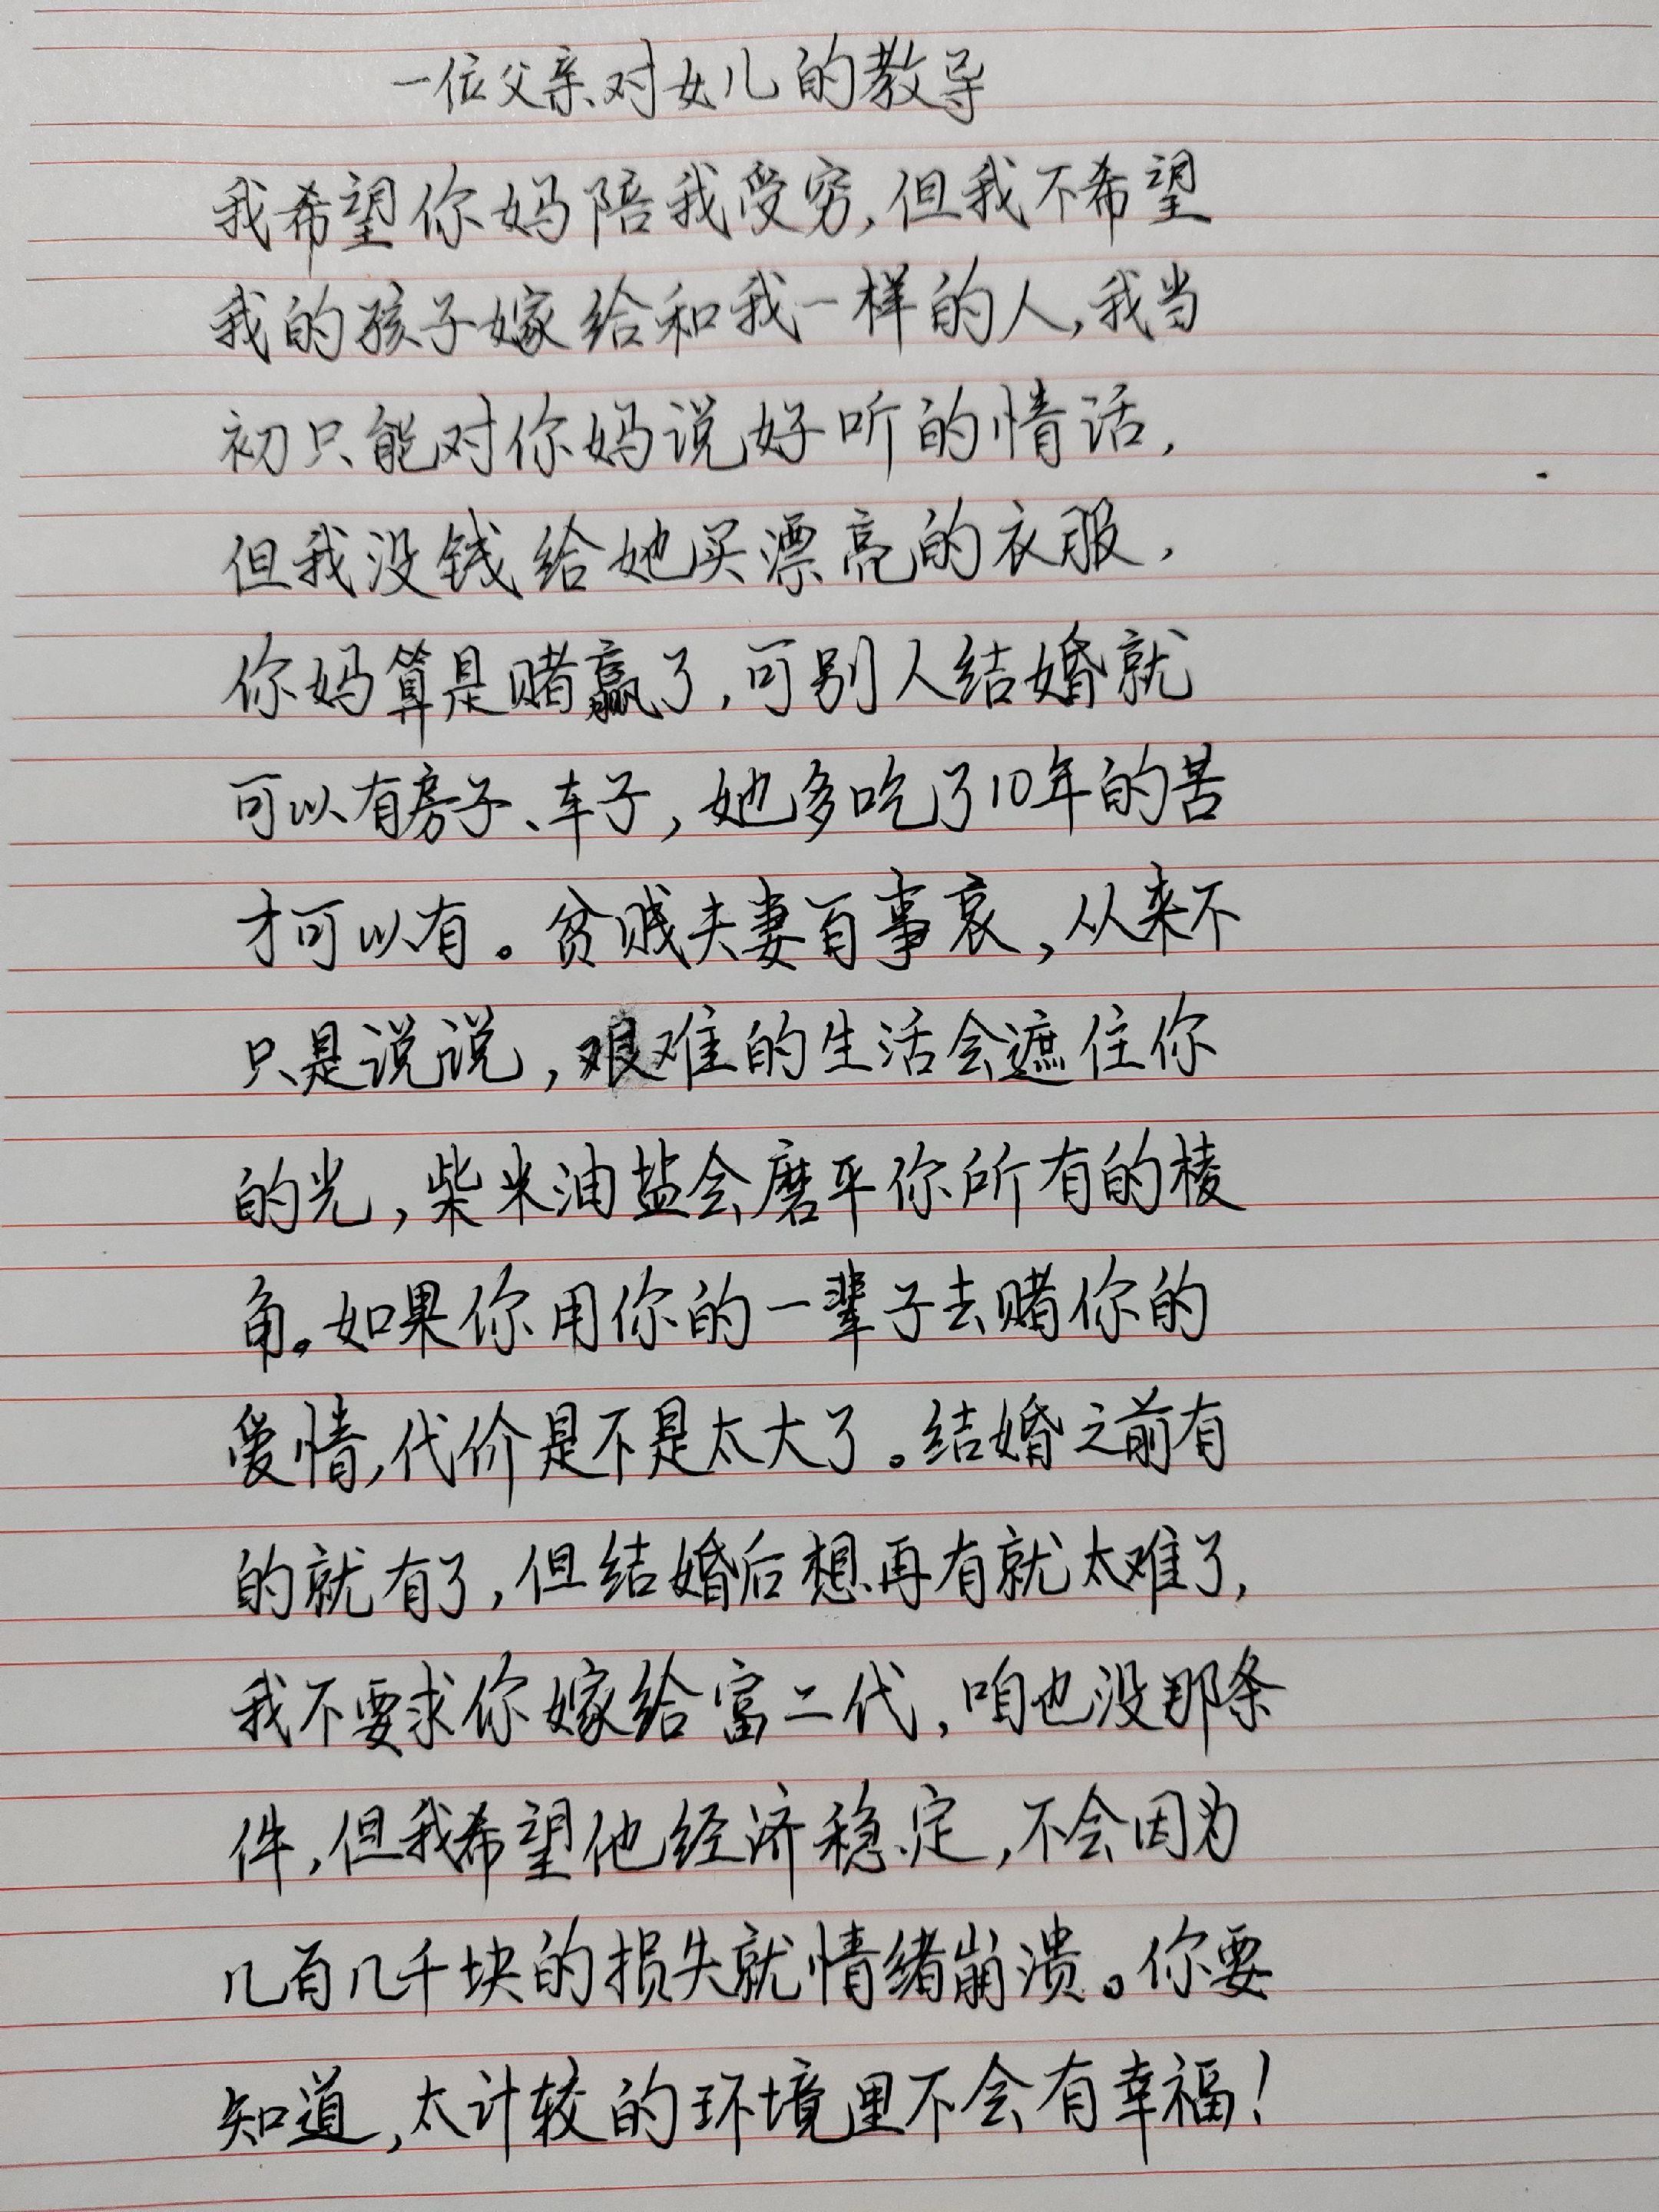 一位父亲对女儿的教导
我希望你妈陪我受穷,但我不希望
我的孩子嫁给和我一样的人,我当
初只能对你妈说好听的情话,
但我没钱给她买漂亮的衣服,
你妈算是赌赢了,可别人结婚就
可以有房子、车子,她多吃了10年的苦
才可以有。贫贱夫妻百事哀,从来不
只是说说,艰难的生活会遮住你
的光,柴米油盐会磨平你所有的棱
角。如果你用你的一辈子去赌你的
爱情,代价是不是太大了。结婚之前有
的就有了,但结婚后想再有就太难了,
我不要求你嫁给富二代,咱也没那条
件,但我希望他经济稳定,不会因为
几百几千块的损失就情绪崩溃。你要
知道,太计较的环境里不会有幸福!